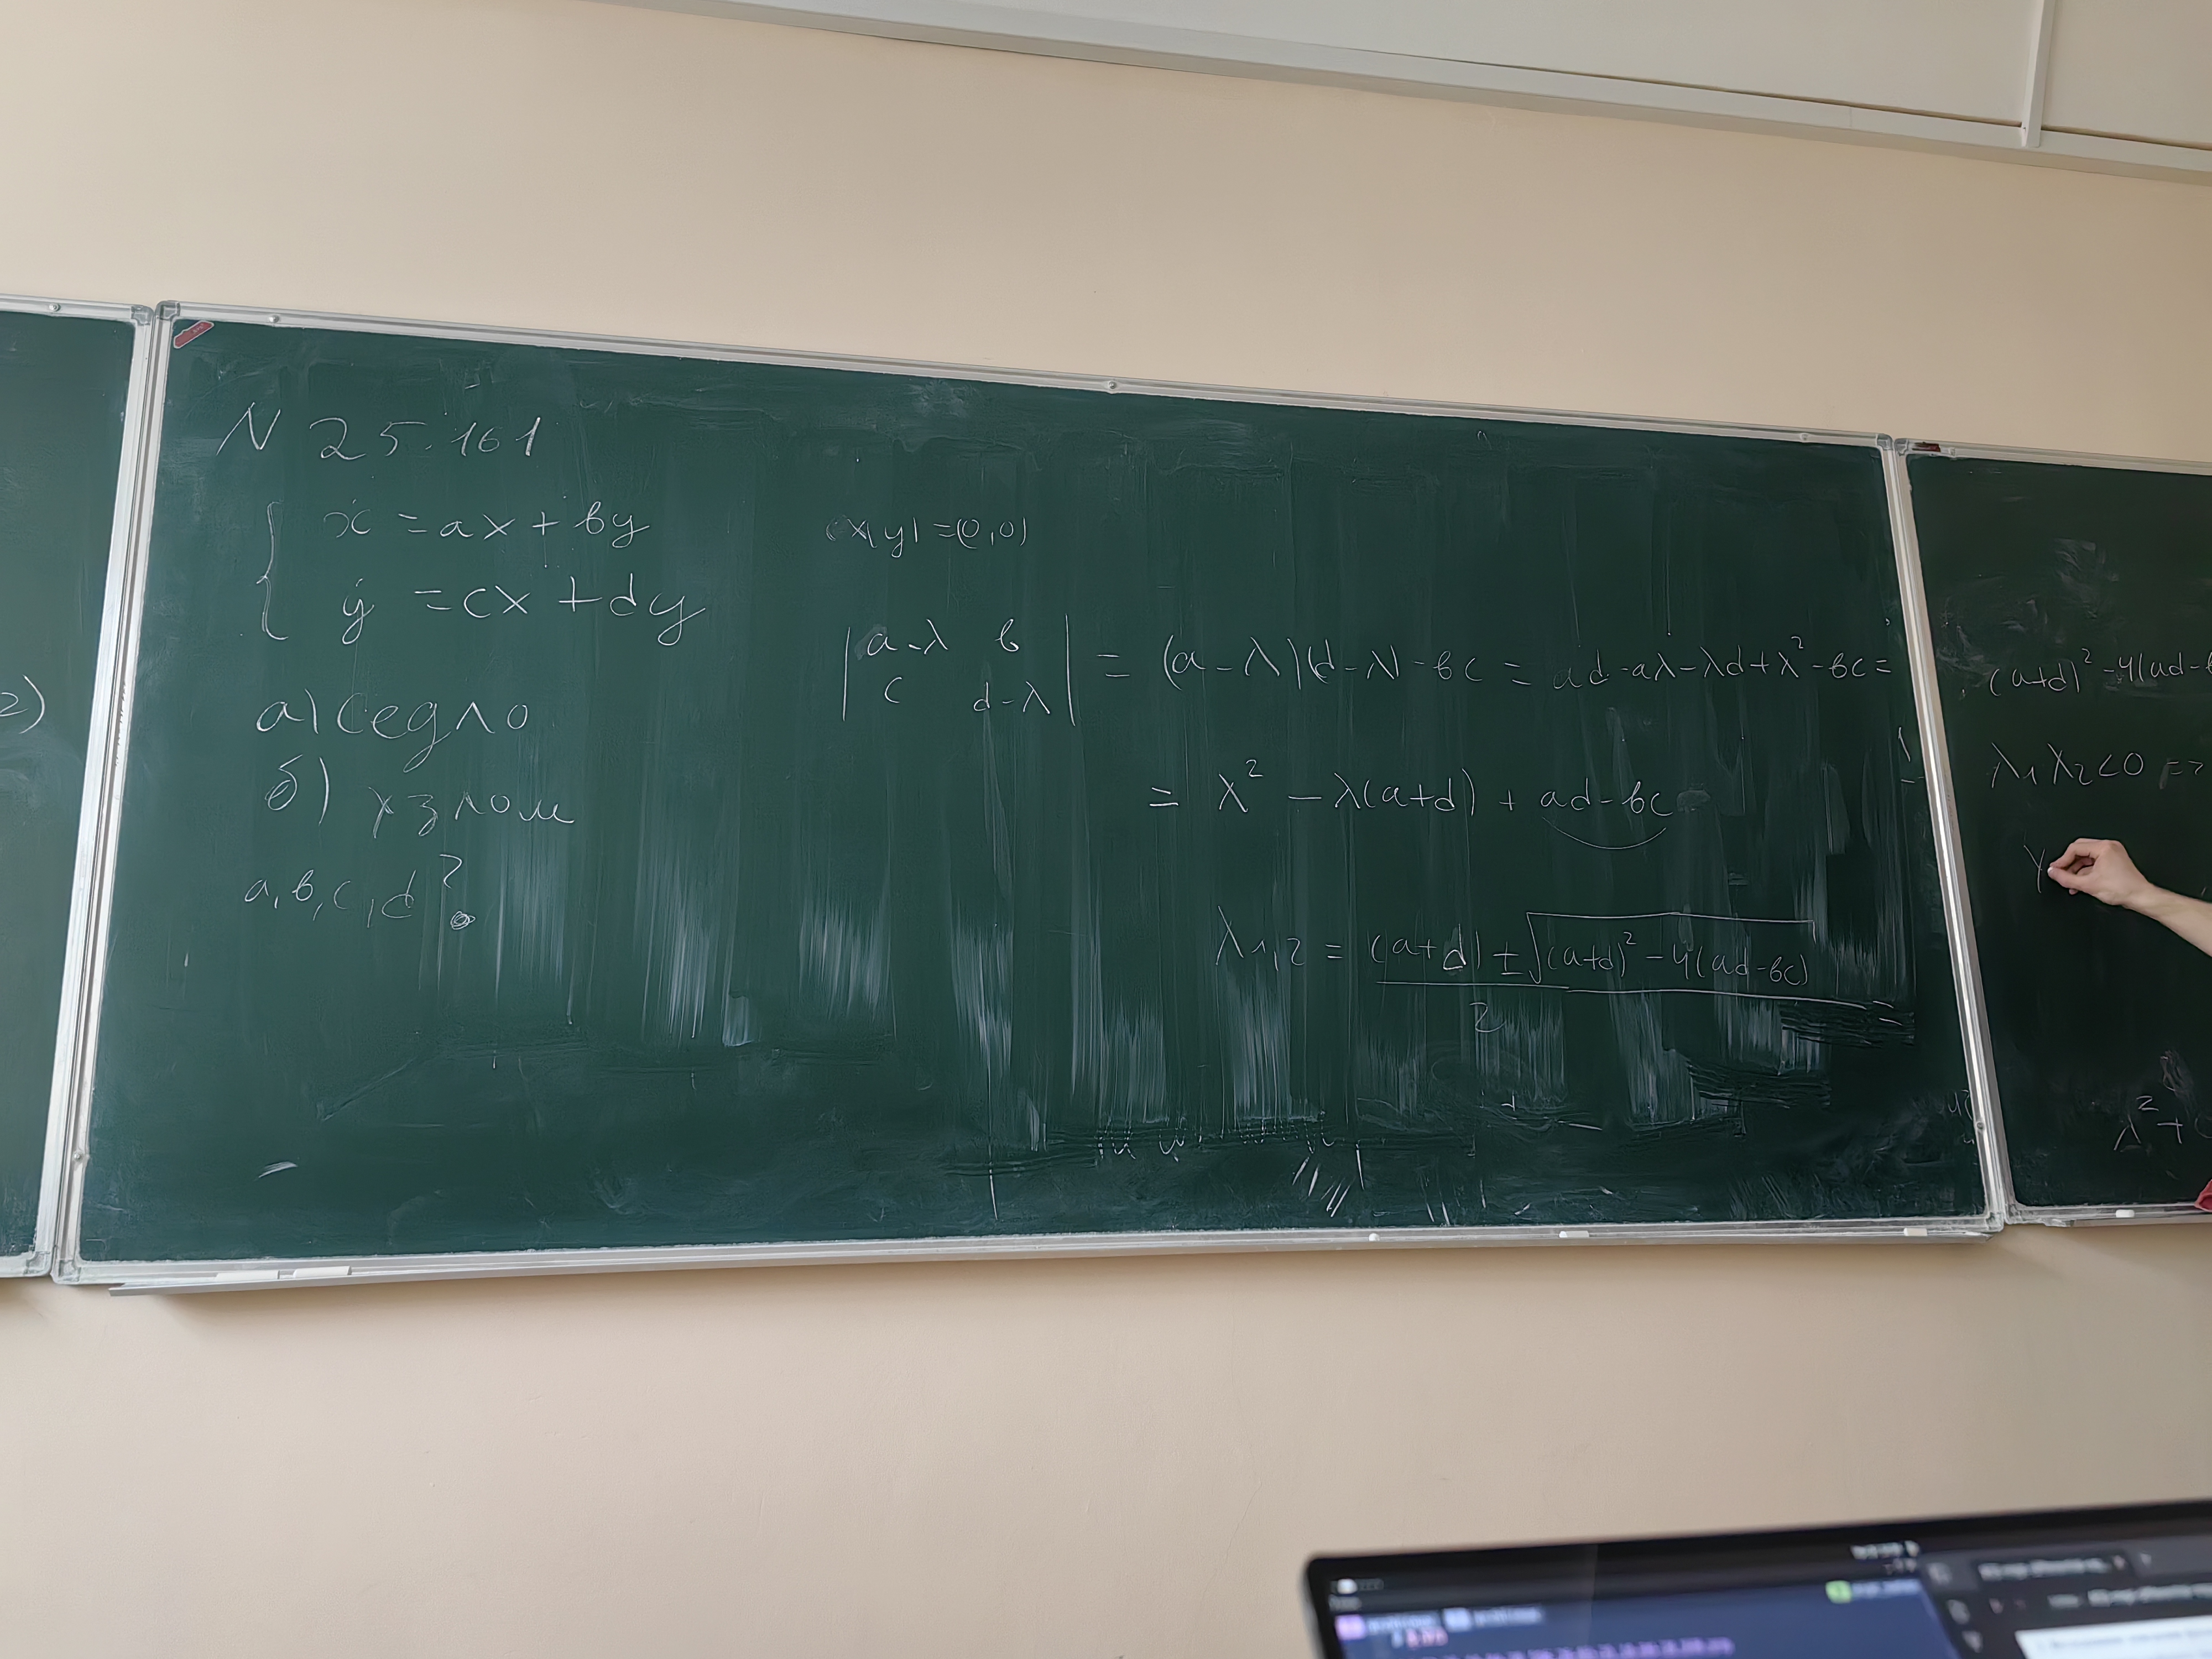 2)
N 25.161
{ ẋ = ax + вy
ẏ = cx + dy
а) седло
б) узлом
a, в, c, d ?
(x, y) = (0, 0)
| a-λ в |
| c d-λ | = (a - λ)(d - λ) - вc = ad - aλ - λd + λ² - вc =
= λ² - λ(a+d) + ad - вc
λ1,2 = (a+d) ± √(a+d)² - 4(ad-вc)
2
(a+d)² - 4(ad-
λ1 λ2 < 0 =>
λ² +